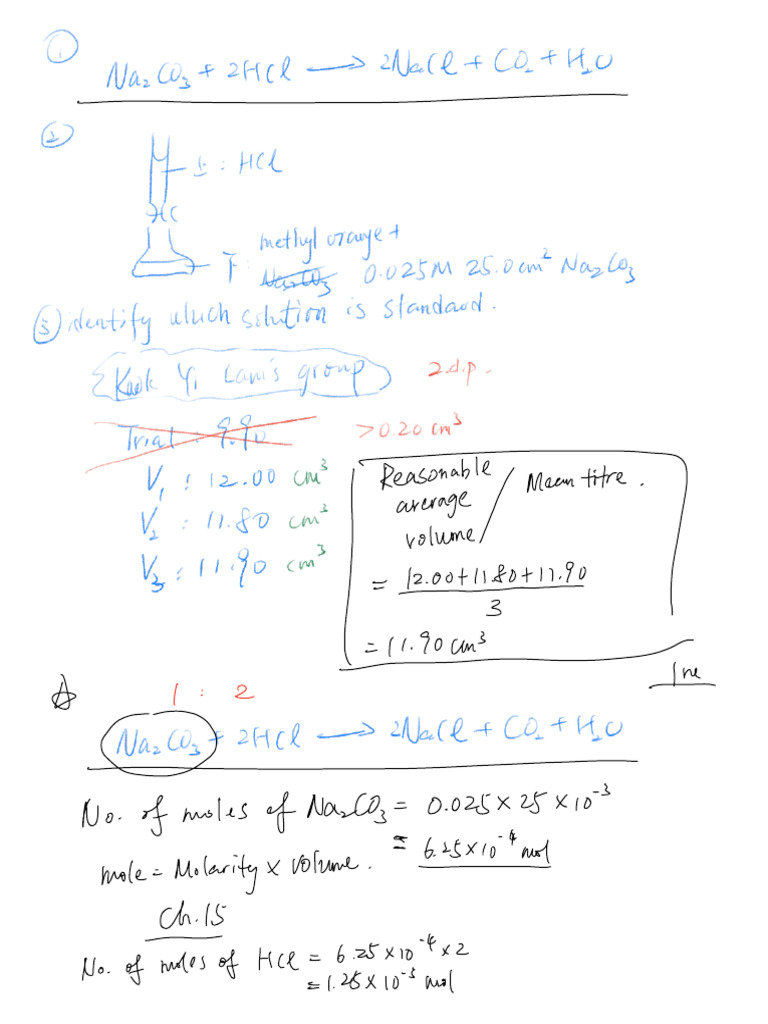 ①
Na₂CO₃ + 2HCl → 2NaCl + CO₂ + H₂O
②
上 : HCl
HC
methyl orange +
下 : Na₂CO₃ 0.025M 25.0cm² Na₂CO₃
③ identify which solution is standard.
Kwok Yi Lam's group
2.d.p.
Trial : 9.90
>0.20 cm³
V₁ : 12.00 cm³
V₂ : 11.80 cm³
V₃ : 11.90 cm³
Reasonable average volume / Mean titre.
= 12.00+11.80+11.90
3
= 11.90 cm³
1 : 2
Na₂CO₃ + 2HCl → 2NaCl + CO₂ + H₂O
No. of moles of Na₂CO₃ = 0.025 × 25 × 10⁻³
= 6.25 × 10⁻⁴ mol
mole = Molarity × volume.
Ch.15
No. of moles of HCl = 6.25 × 10⁻⁴ × 2
= 1.25 × 10⁻³ mol